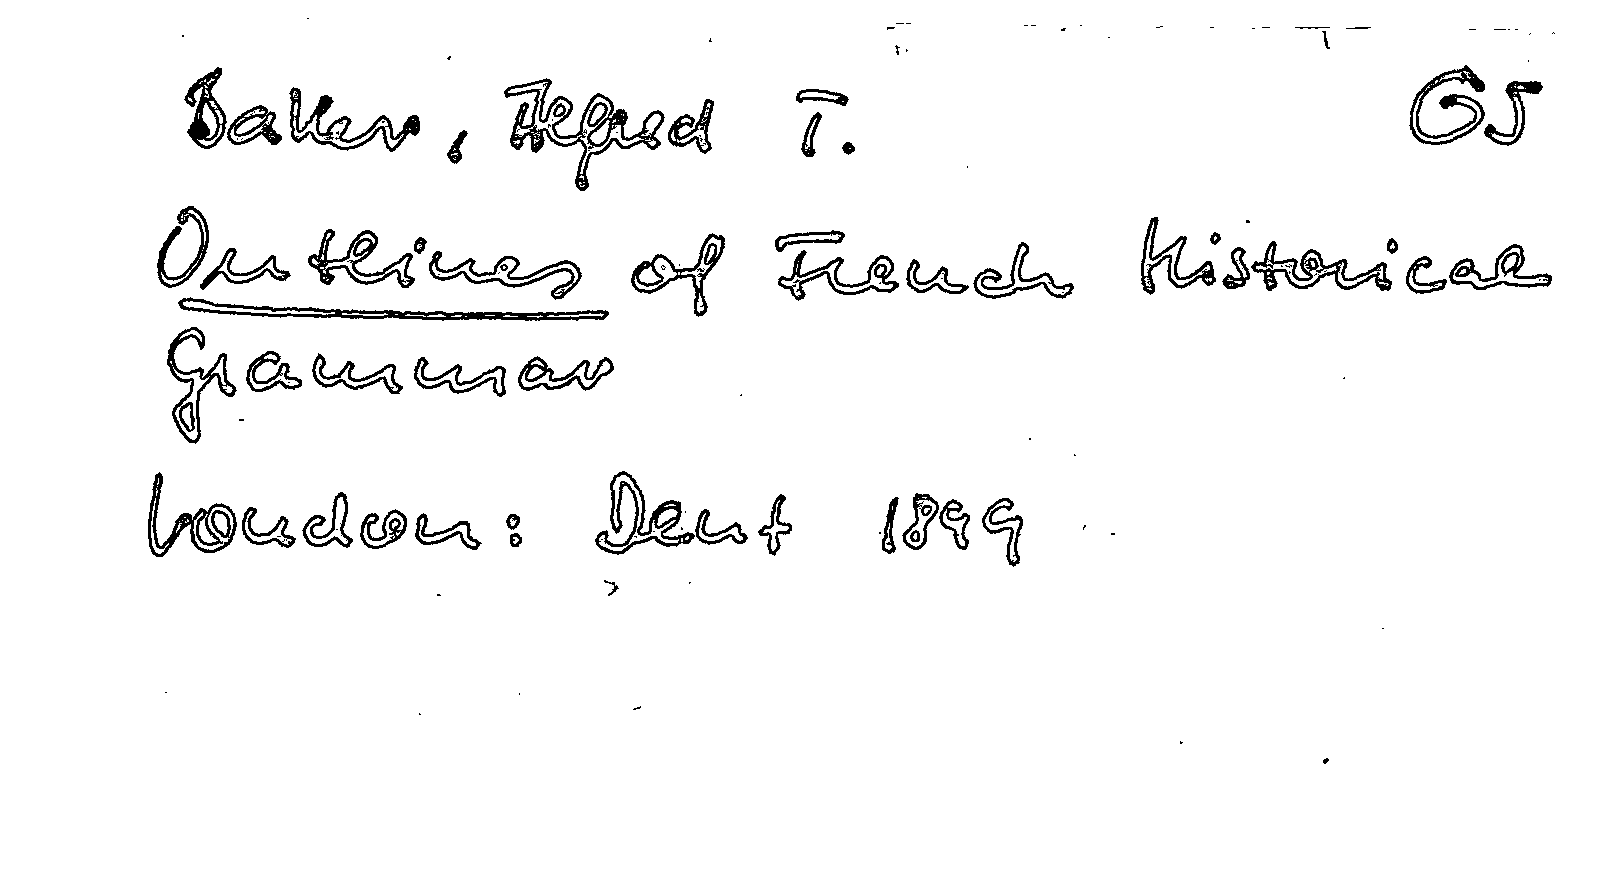 Baker, Alfred T. G5
Outlines of French Historical
Grammar
London: Dent 1899